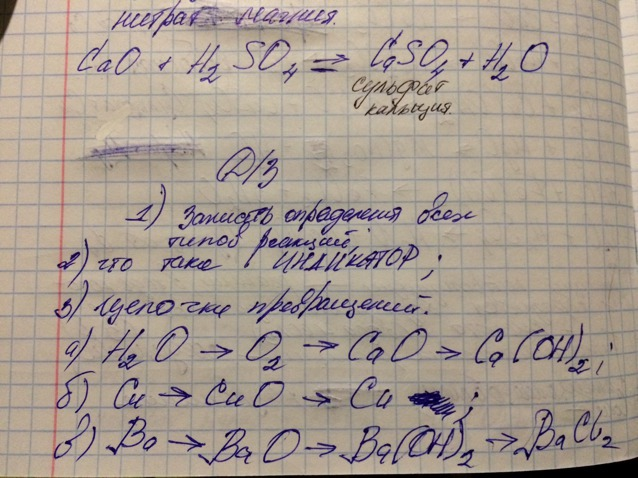 нитрат магния.
CaO + H₂SO₄ = CaSO₄ + H₂O
сульфат
кальция.
Д/З
1) Записать определения всех
типов реакций;
2) что тако ИНДИКАТОР;
3) Цепочки превращений.
а) H₂O → O₂ → CaO → Ca(OH)₂;
б) Cu → CuO → Cu ;
в) Ba → BaO → Ba(OH)₂ → BaCl₂